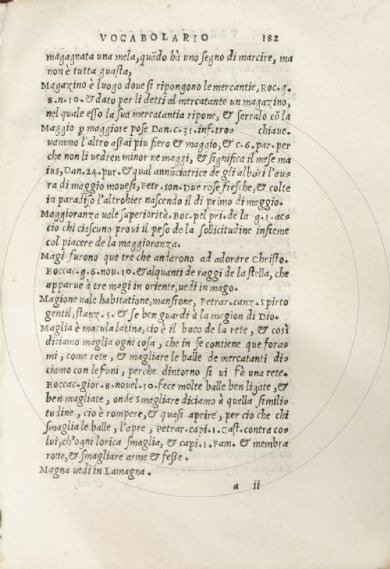 VOCABOLARIO 182
magagnata una mela, quãdo hà uno segno di marcire, ma
non è tutta guasta,
Magazino è luogo doue si ripongono le mercantie, Boc. g.
8. n. 10. & dato per li detti al mercatante un magazino,
nel quale esso la sua mercantia ripone, & serralo cõ la
Maggio ꝑ maggiore pose Dan. c. 31. inf. tro= chiaue.
uammo l'altro assai piu fero & maggio, & c. 6. par. per
che non li uedren minor ne maggi, & significa il mese ma
ius, Dan. 24. pur. & qual annũciatrice de gli albori l'au=
ra di maggio mouesi, Petr. son. Due rose fresche, & colte
in paradiso l'altrohier nascendo il dì primo di maggio.
Maggioranza uale superiorità. Boc. pel pri. de la g. 1. ac=
cio chi ciascuno proui il peso de la sollicitudine insieme
col piacere de la maggioranza.
Magi furono que tre che andarono ad adorare Christo.
Boccac. g. 6. nou. 10. & alquanti de raggi de la stella, che
apparue à tre magi in oriente, uedi in mago.
Magione uale habitatione, mansione, Petrar. canz. Spirto
gentil, stanz. 5. & se ben guardi à la magion di Dio.
Maglia è macula latina, cio è il buco de la rete, & così
diciamo maglia ogni cosa, che in se contiene que fora=
mi, come rete, & magliare le balle de mercatanti di=
ciamo con le funi, perche dintorno si ui fà una rete.
Boccac. gior. 8. nouel. 10. fece molte balle ben ligate, &
ben magliate, onde Smagliare diciamo è quella simili=
tudine, cio è rompere, & quasi aprire, per cio che chi
smaglia le balle, l'apre, Petrar. capi. 1. Cast. contra co=
lui, ch'ogni lorica smaglia, & capi. 1. Fam. & membra
rotte, & smagliare arme & fesse.
Magna uedi in Lamagna.
a ii